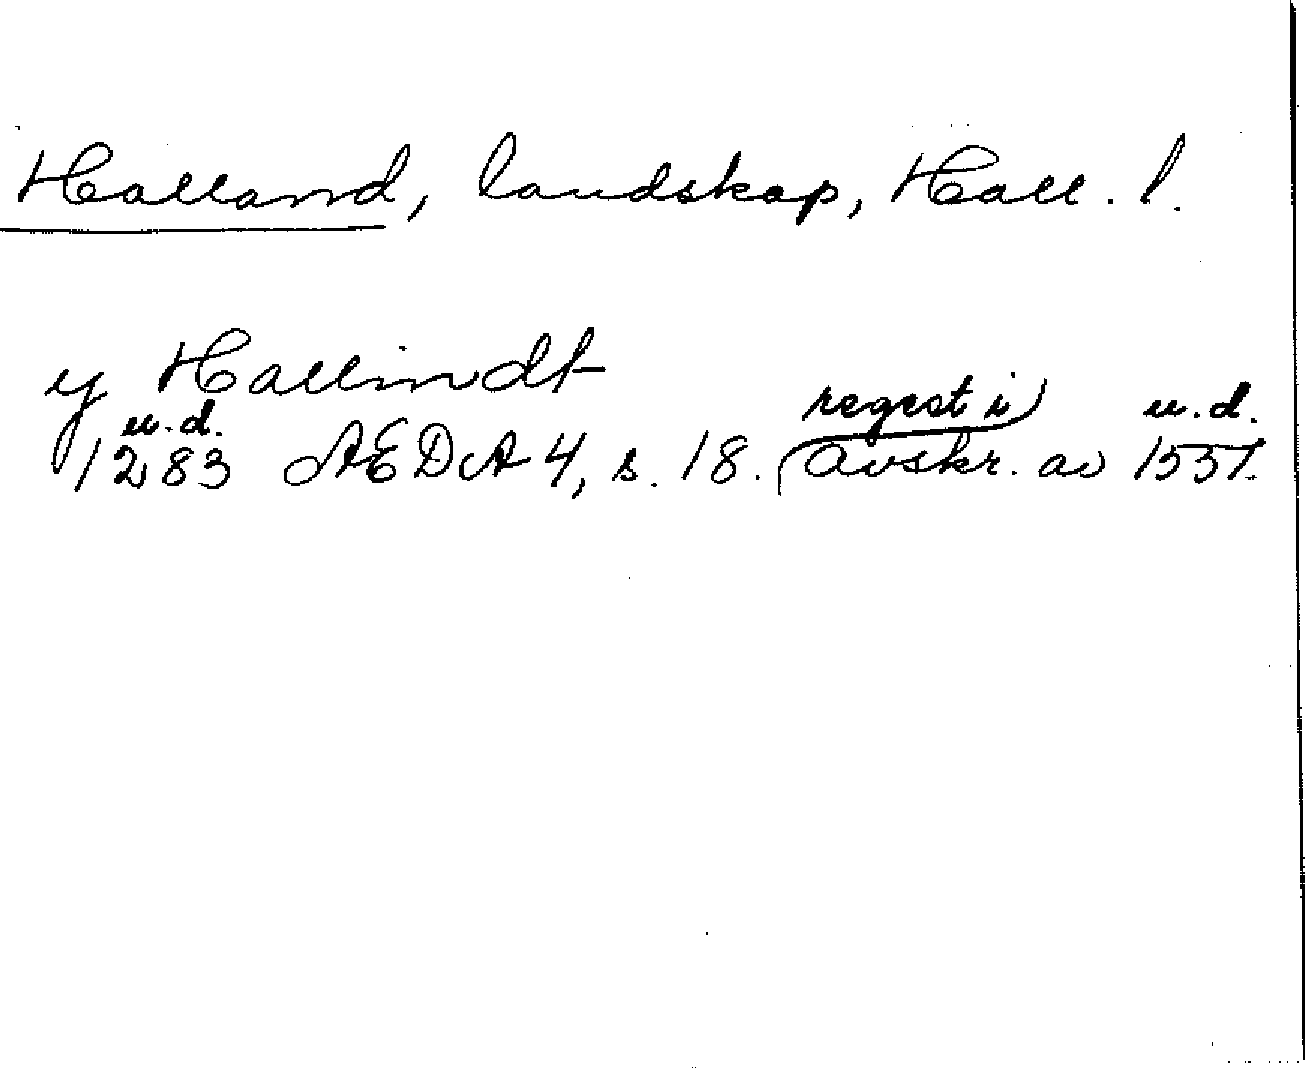 Halland, landskap, Hall. l.
y Hallindt
u.d. regest i u.d.
1283 AEDA 4, s. 18. (avskr. av 1551.